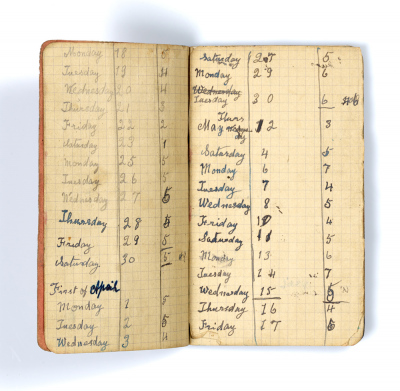 Monday 18 5
Tuesday 19 4
Wednesday 20 4
Thursday 21 3
Friday 22 2
Saturday 23 1
Monday 25 5
Tuesday 26 5
Wednesday 27 5
Thursday 28 5
Friday 29 5
Saturday 30 5
First of April
Monday 1 5
Tuesday 2 5
Wednesday 3 4
Saturday 27 5
Monday 29 6
Wednesday
Tuesday 30 6
Thurs
May 2 3
Saturday 4 5
Monday 6 7
Tuesday 7 4
Wednesday 8 5
Friday 10 4
Saturday 11 5
Monday 13 6
Tuesday 14 7
Wednesday 15 5
Thursday 16 4
Friday 17 6